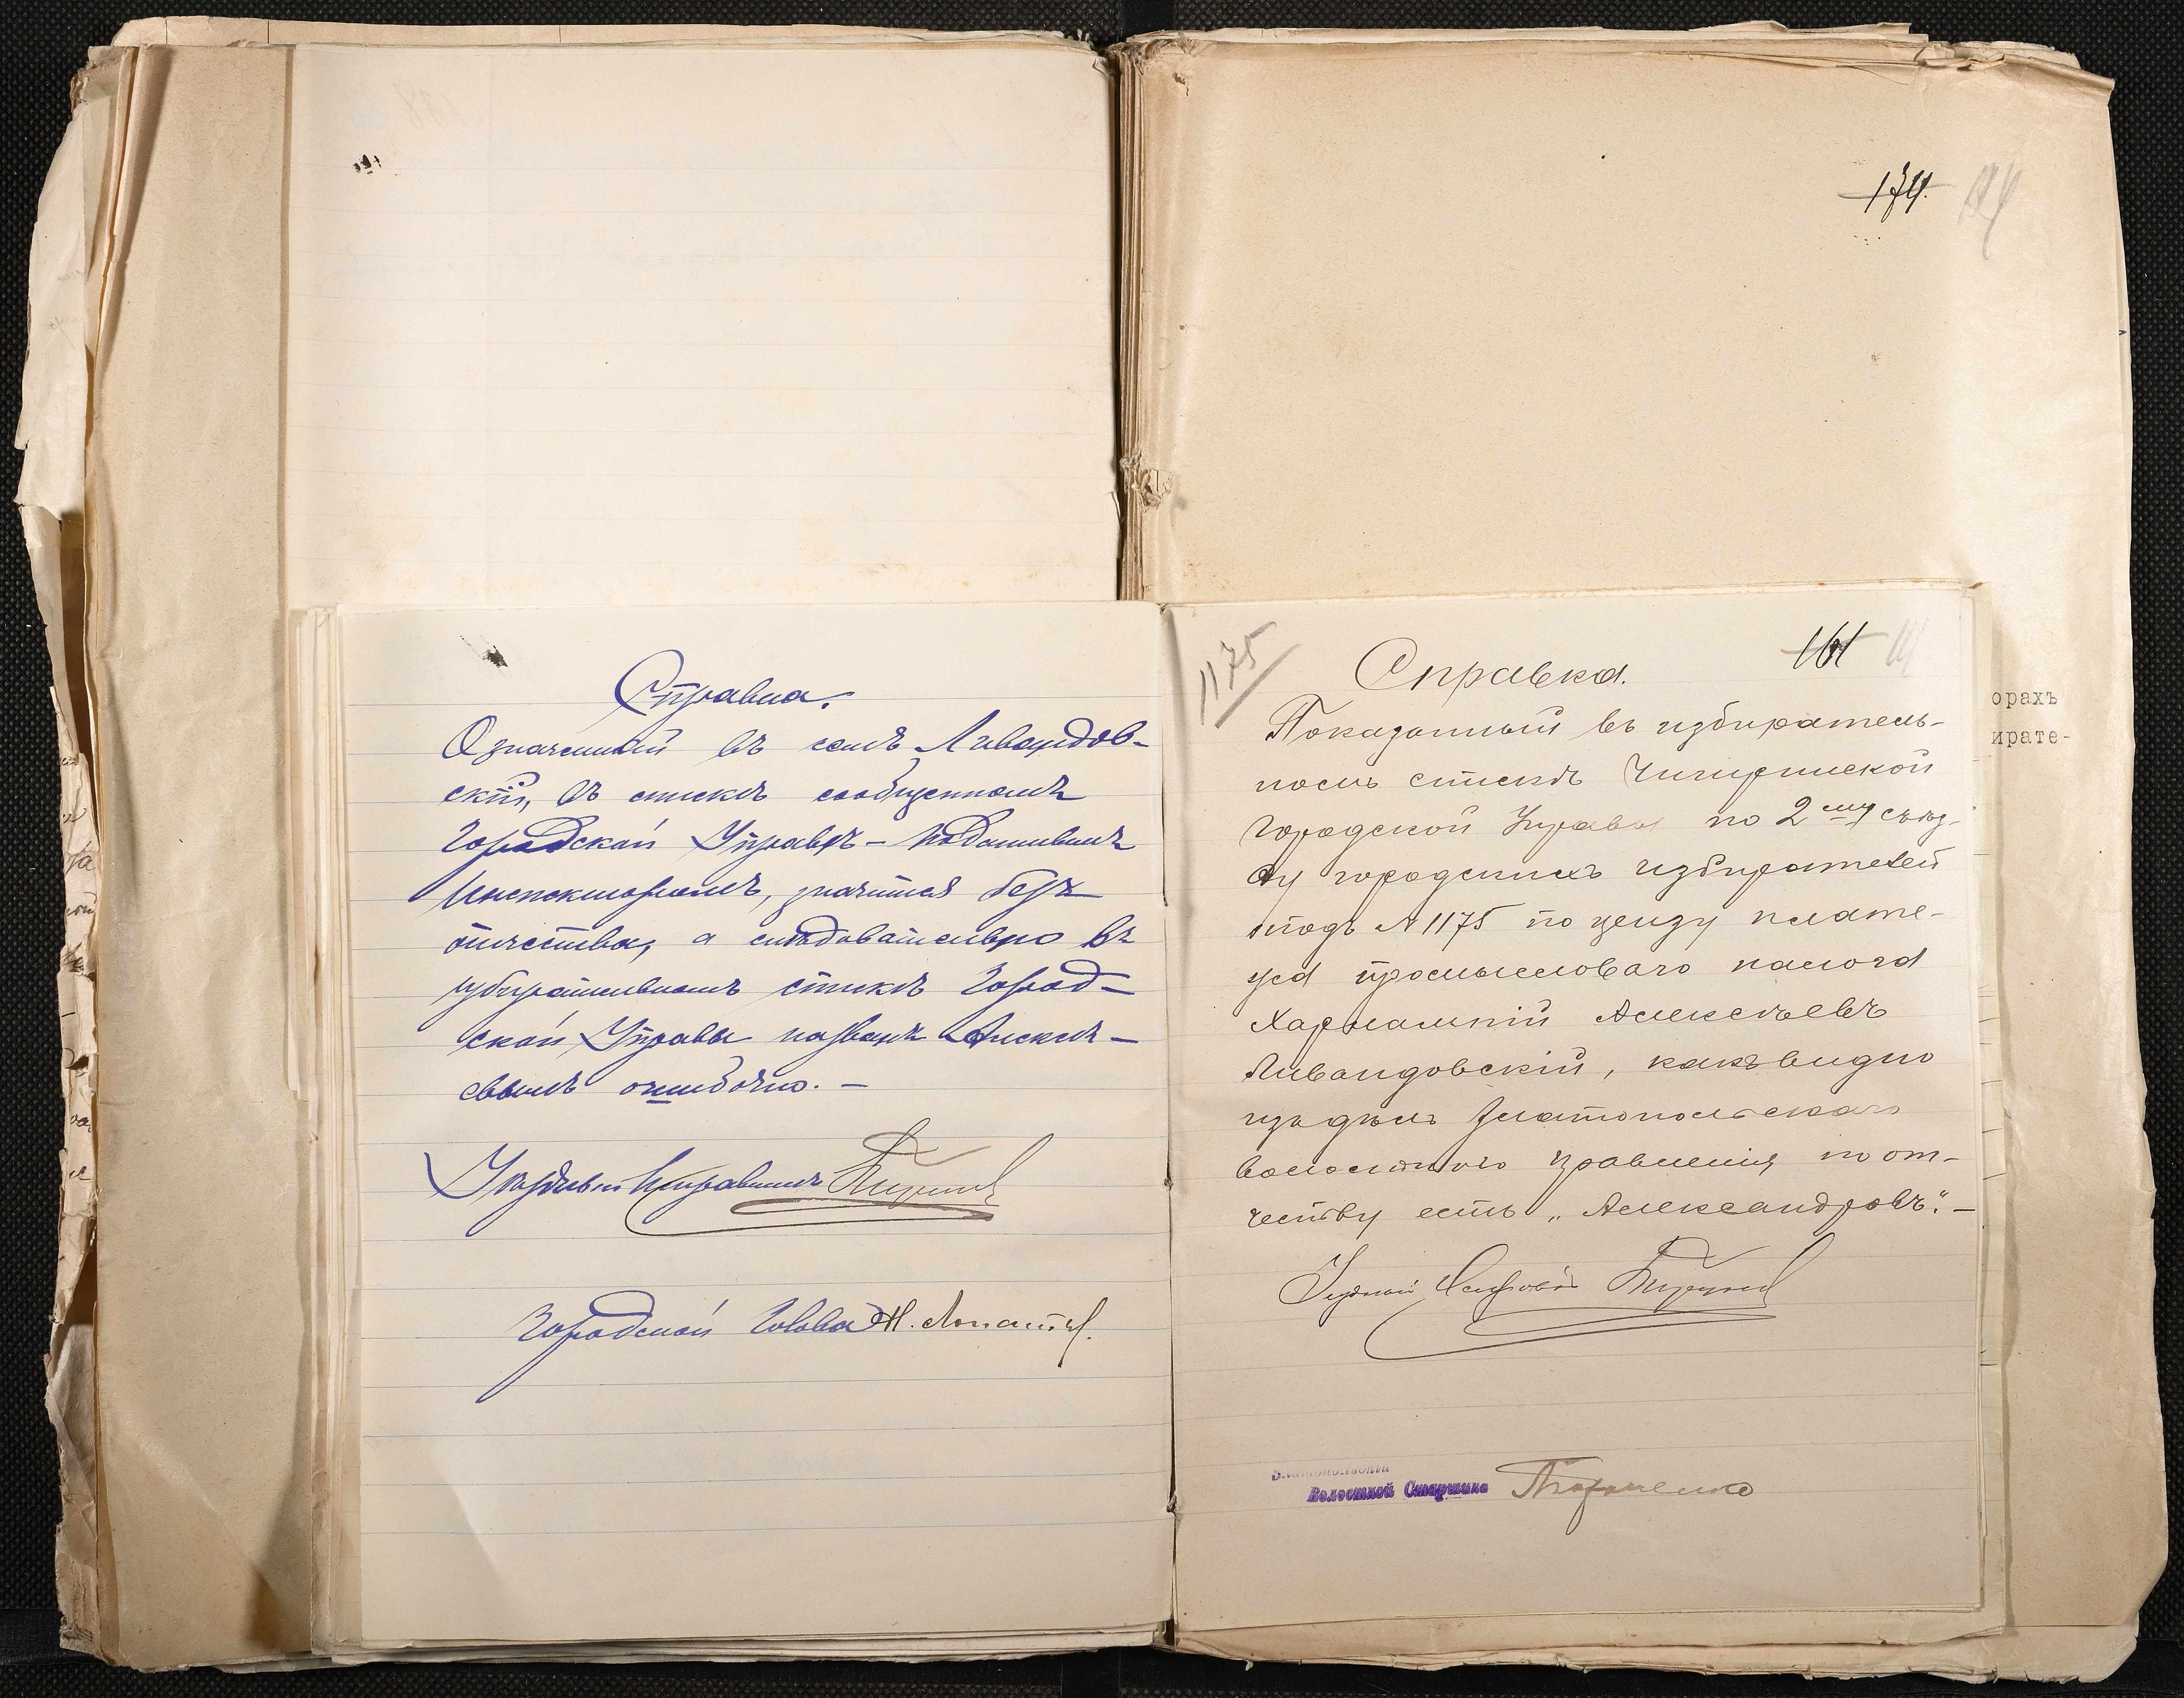 Справка.
Означенный въ семъ Ливандов-
скій, въ спискѣ сообщенномъ
Городской Управѣ - Податнымъ
Инспекторомъ, значится безъ
отчества, а слѣдовательно въ
избирательномъ спискѣ Город-
ской Управы названъ Алексѣ-
евымъ ошибочно. -
Уѣздный Исправникъ
Городской Голова Н.
174.
1175
161
Справка.
Показанный въ избиратель-
номъ спискѣ Чигиринской
Городской Управы по 2му съѣз-
ду городскихъ избирателей
подъ №1175 по цензу платель-
ца промысловаго налога
Харлампій Алексѣевъ
Ливандовскій, какъ видно
изъ дѣлъ Златопольскаго
волостного правленія по от-
честву есть „Александровъ". -
Волостной Старшина
орахъ
ирате-